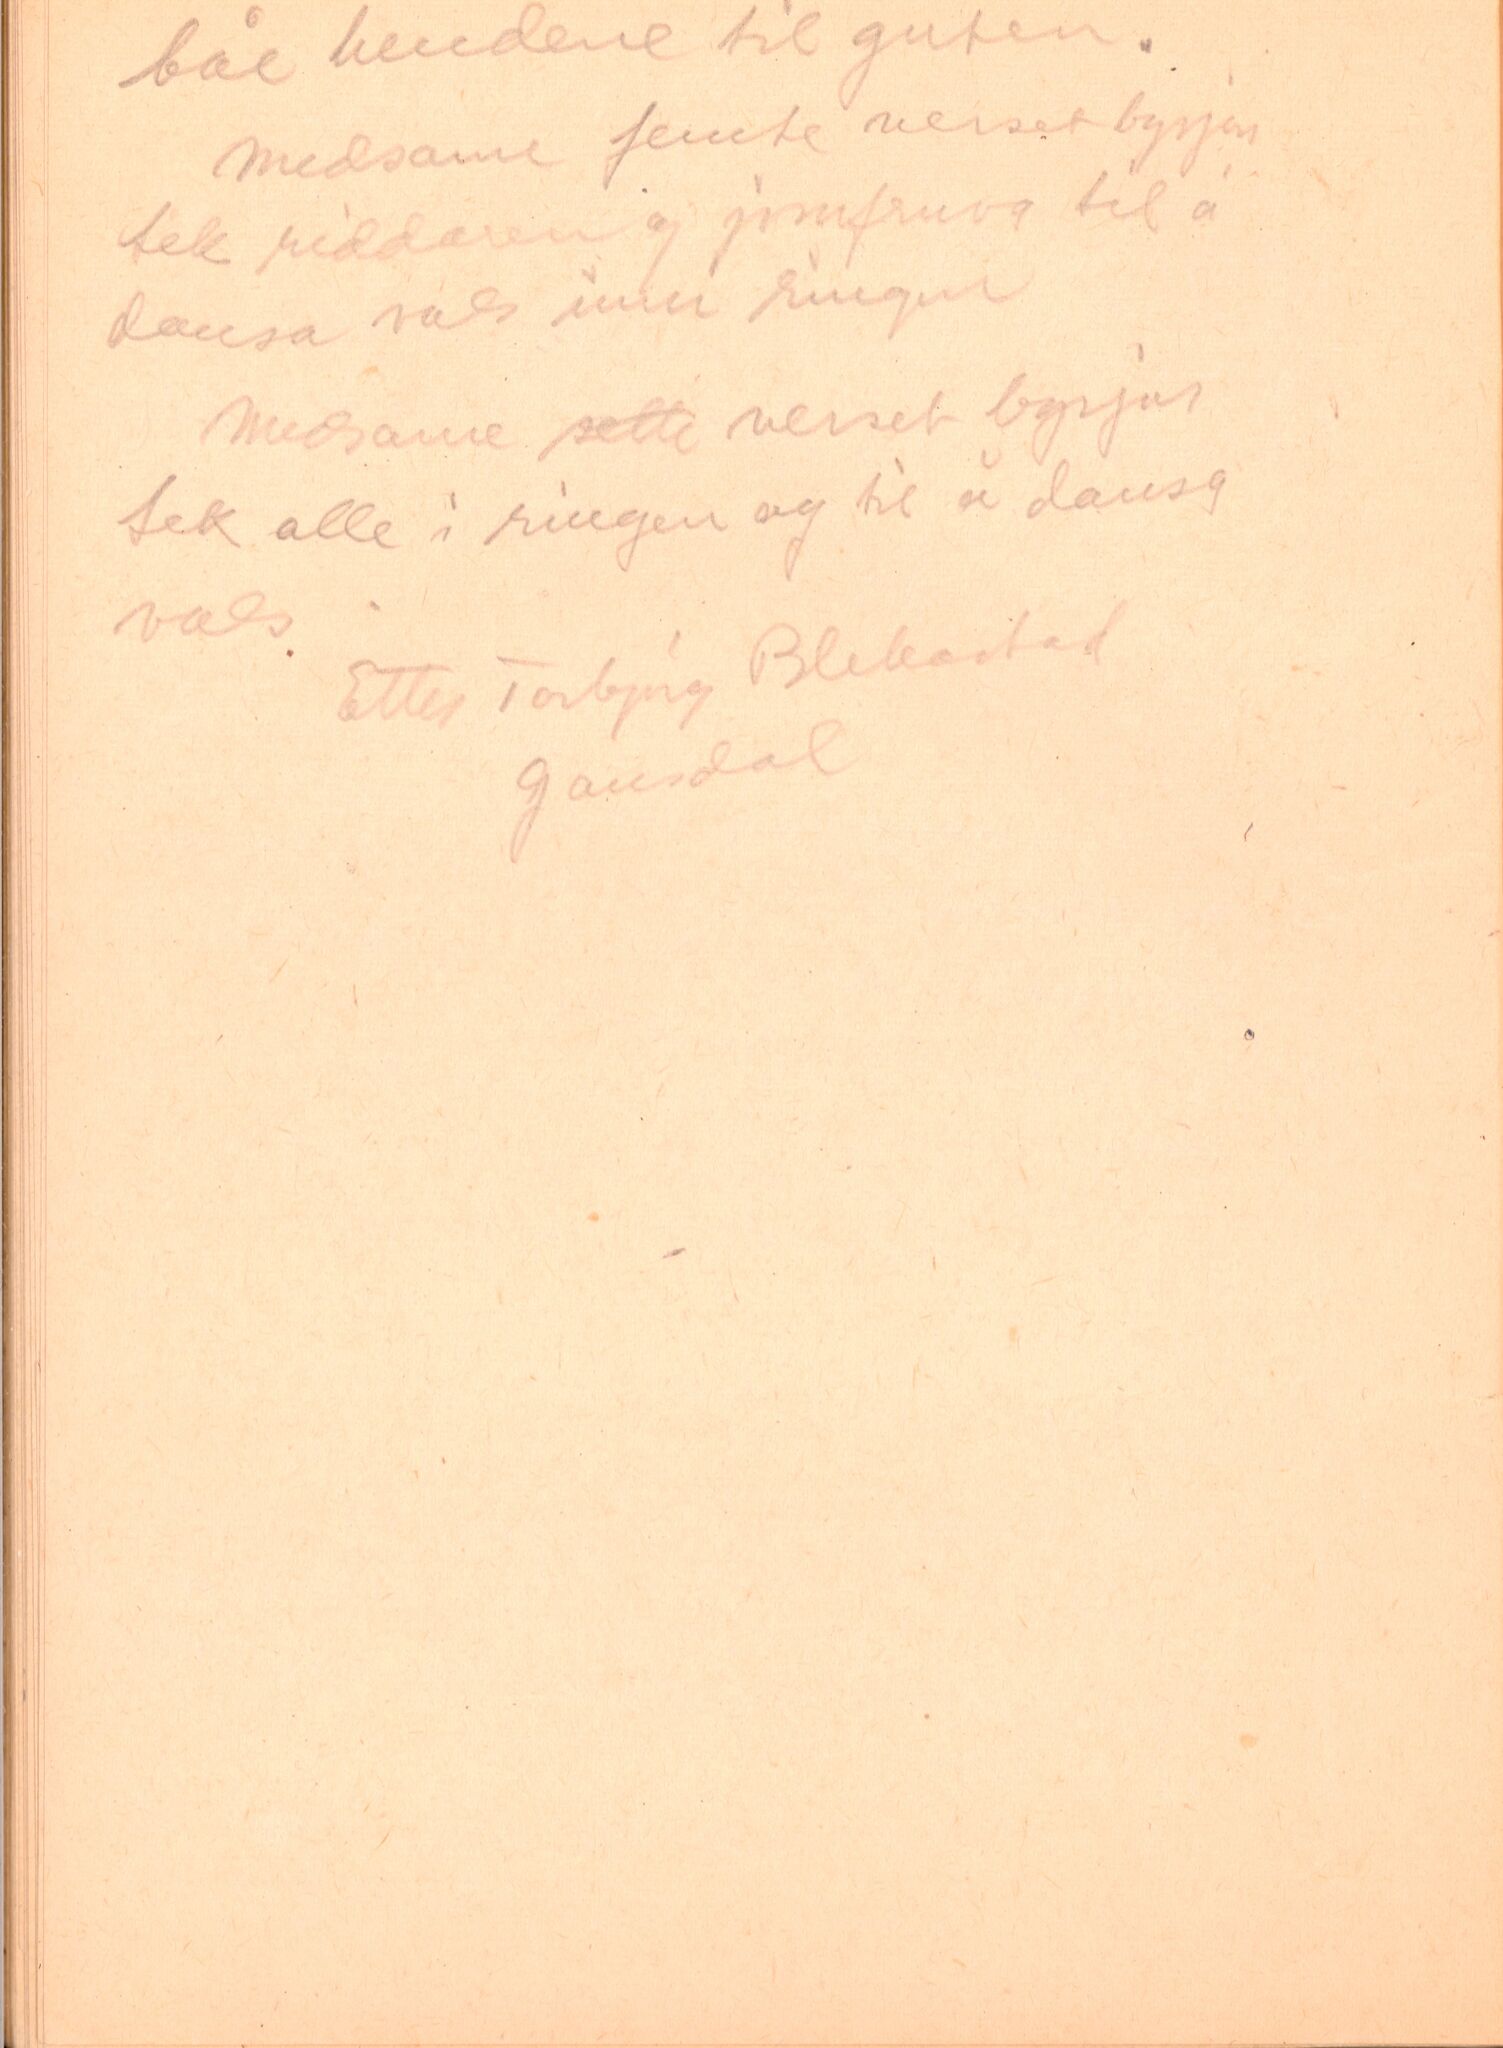 båe hendene til guten.
Medsame femte verset byrjar
tek riddaren og jomfruva til å
dansa vals inni ringen
Medsame sette verset byrjar
tek alle i ringen og til å dansa
vals.
Etter Torbjørg Blekastad
Gausdal